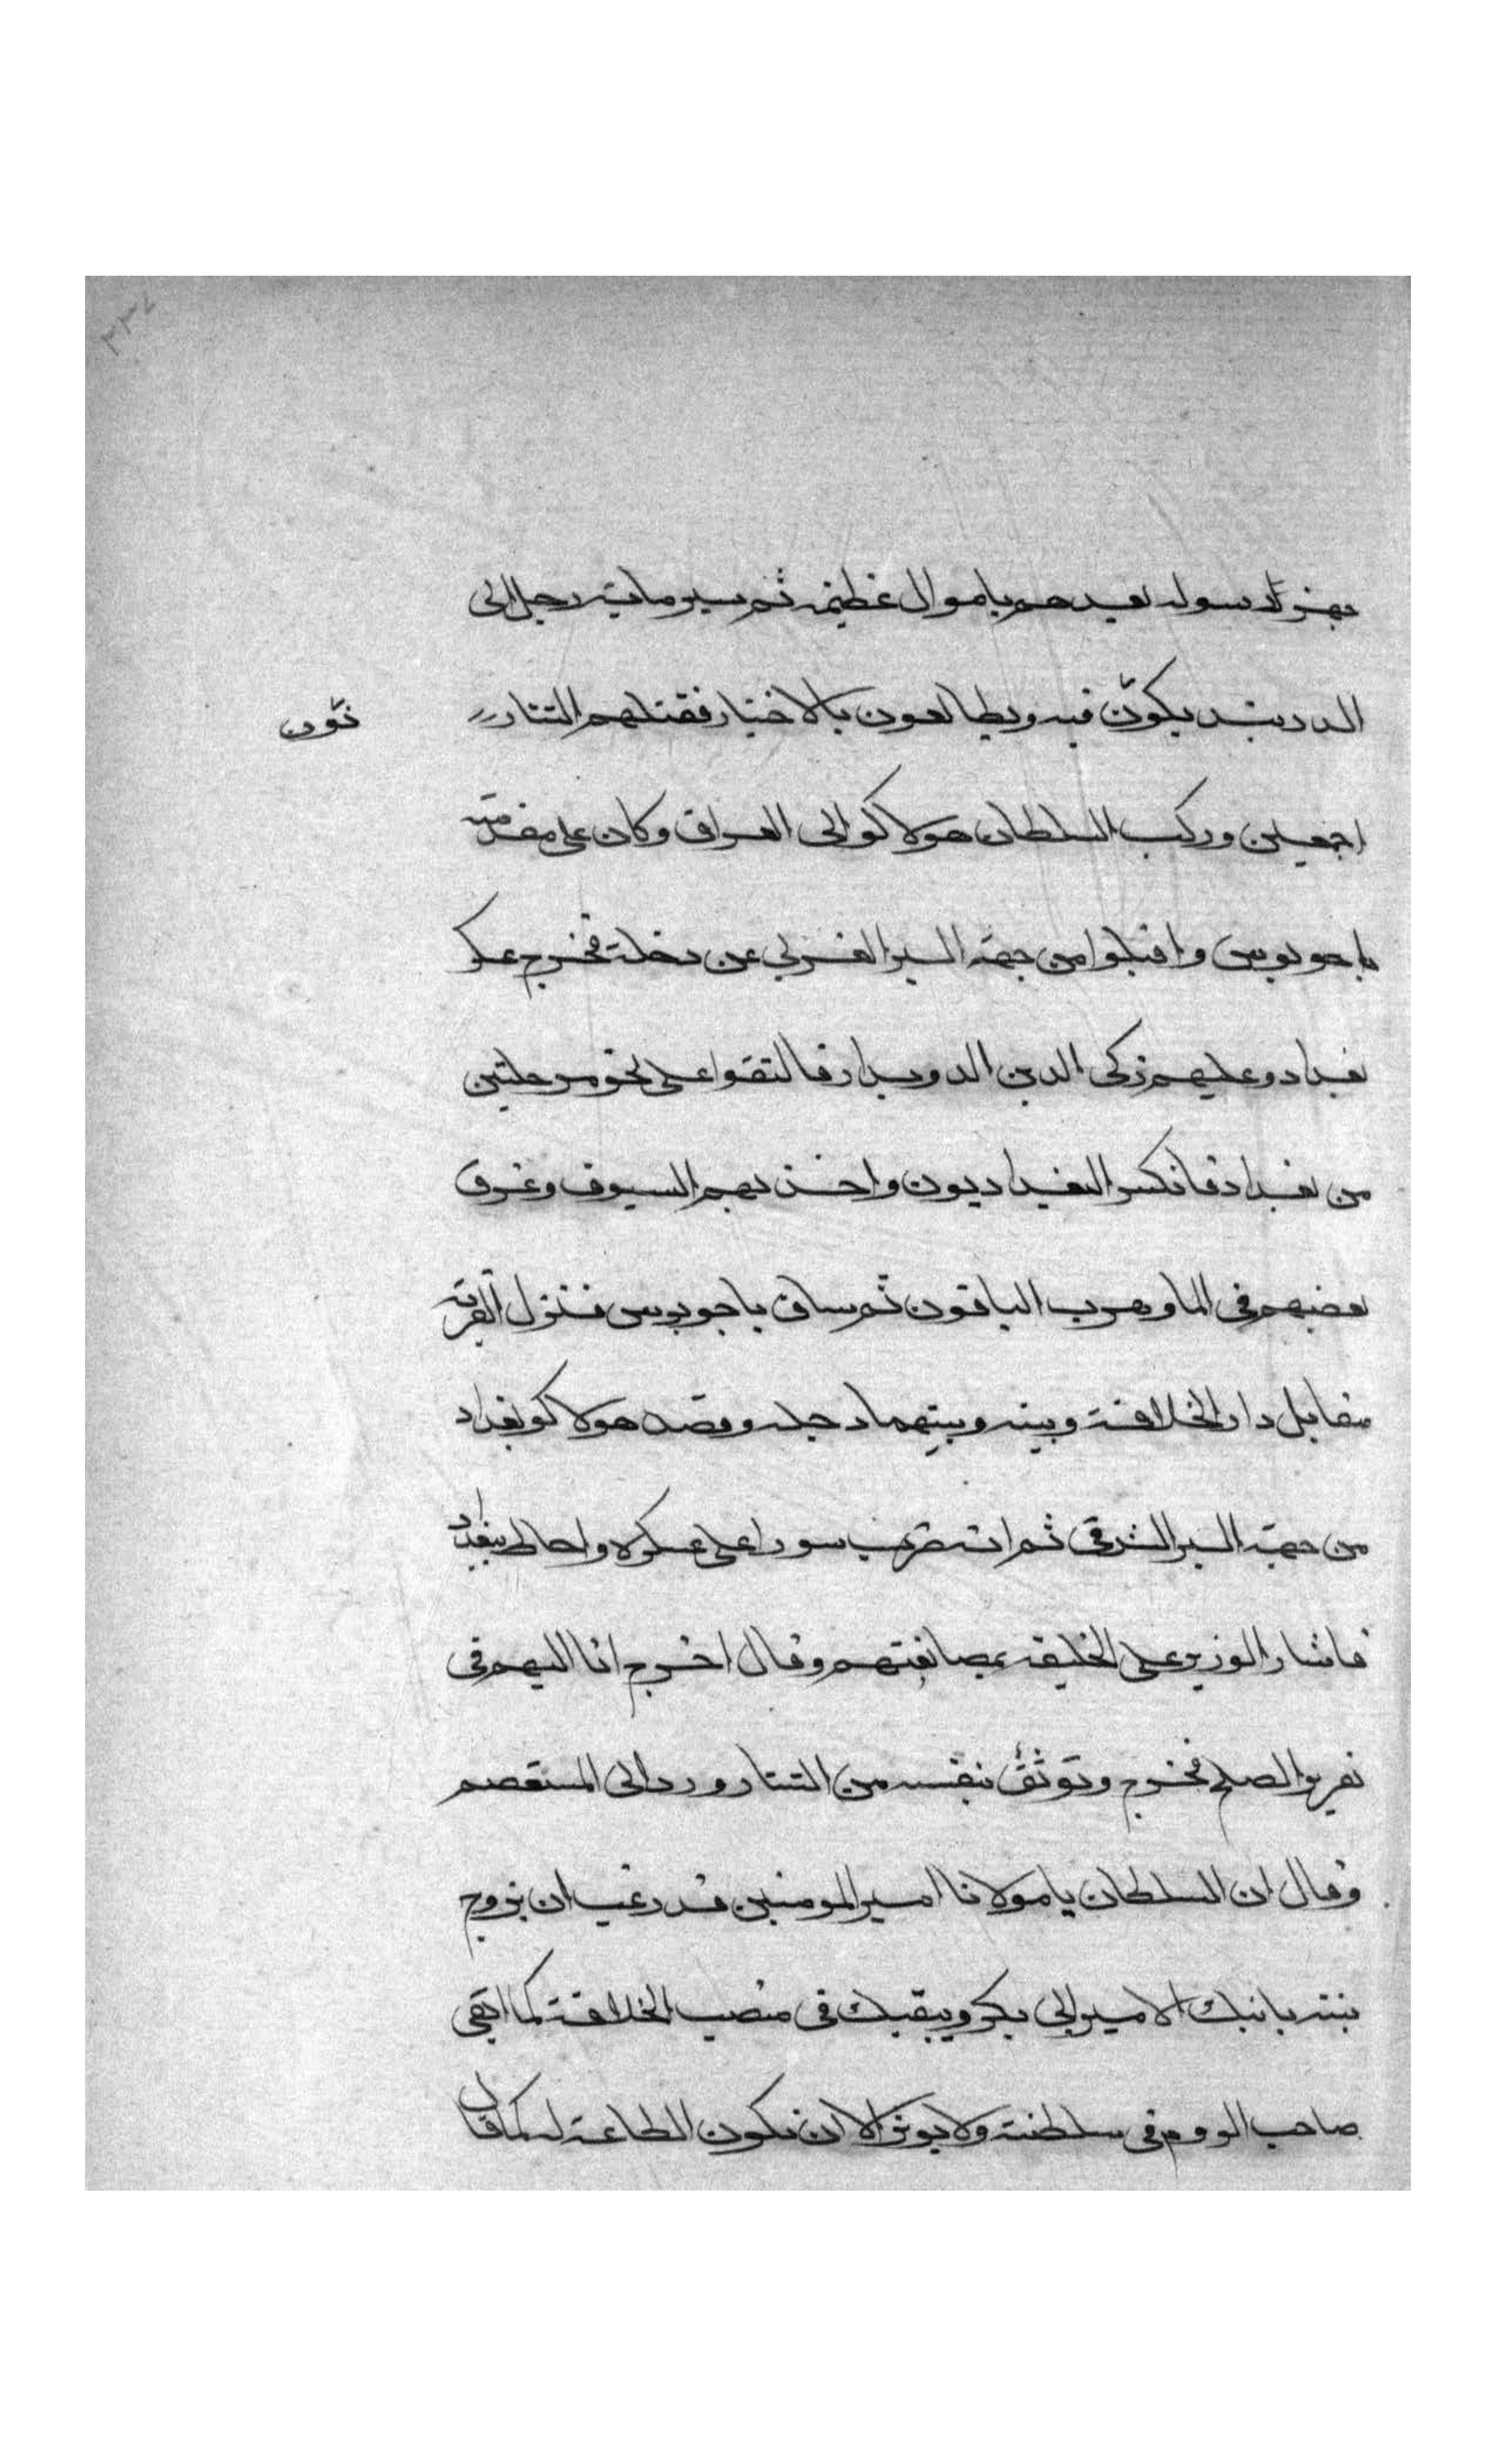 ٣٣٧
رسوله يعدهم باموال عظيمة ثم سير ماية رجل الى
الدربند يكونون فيه ويطالعون بالاخبار فقتلهم التتار
اجمعين وركب السلطان هولاكو الى العراق وكان على مقدمته
باجو نوين واقبلوا من جهة البر الغربى عن دجلة فخرج عسكر
بغداد وعليهم زكى الدين الدويدار فالتقوا على نحو مرحلتين
من بغداد فانكسر البغداديون واخذتهم السيوف وغرق
بعضهم فى الما وهرب الباقون ثم ساق باجو نوين فنزل القرية
مقابل دار الخلافة وبينه وبينهما دجلة وقصد هولاكو بغداد
من جهة البر الشرقى ثم انه ضرب سورا على عسكره واحاط ببغداد
فاشار الوزير على الخليفة بمصانعتهم وقال اخرج انا اليهم فى
تقرير الصلح فخرج وتوثق بنفسه من التتار ورد الى المستعصم
وقال ان السلطان يا مولانا امير المومنين قد رغب ان يزوج
بنته بابنك الامير ابى بكر ويبقيك فى منصب الخلافة كما ابقى
صاحب الروم فى سلطنته ولا يوثر الا ان تكون الطاعة له كما كان